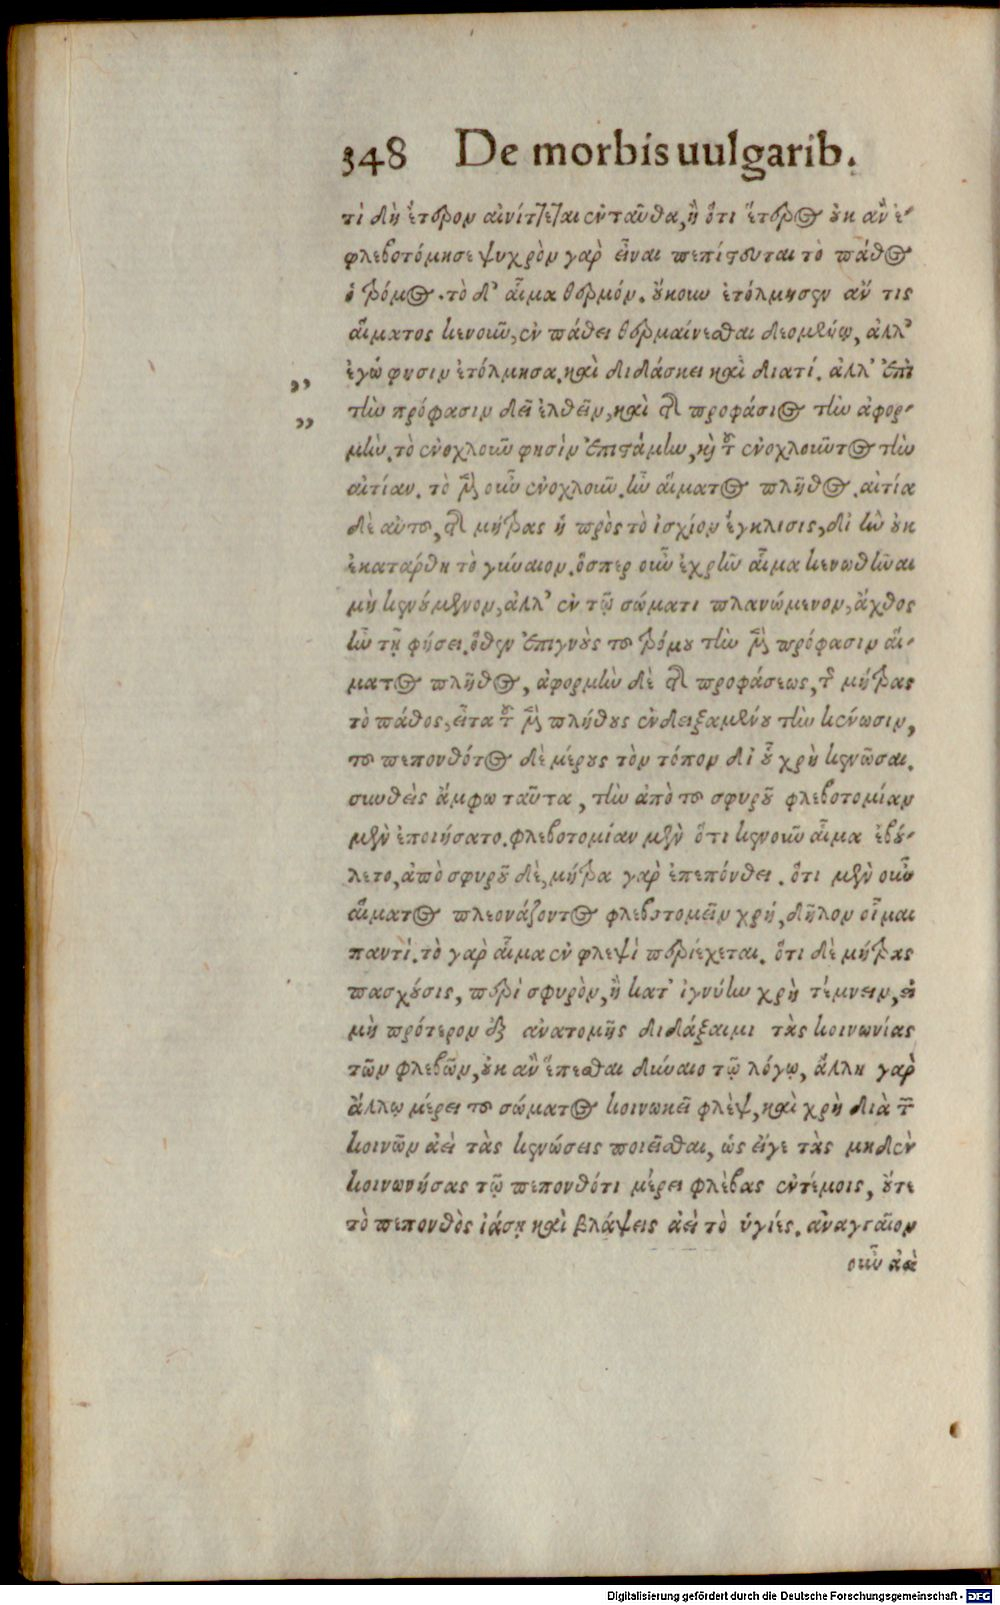 348 De morbis uulgarib.
τὶ δὴ ἕτερον αἰνίττεται ἐνταῦθα, ἢ ὅτι ἕτερος οὐκ ἂν ἐ-
φλεβοτόμησε ψυχρὸν γὰρ εἶναι πεπίστευται τὸ πάθος
ὁ ῥόμος. τὸ δ' αἷμα θερμόν. οὔκουν ἐτόλμησεν ἄν τις
αἵματος κενοῦν, ἐν πάθει θερμαίνεσθαι δεομένῳ, ἀλλ'
ἐγώ φησιν ἐτόλμησα. καὶ διδάσκει καὶ διατί. ἀλλ' ἐπὶ
„ τὴν πρόφασιν δεῖ ἐλθεῖν, καὶ τῆς προφάσιος τὴν ἀφορ-
„ μὴν. τὸ ἐνοχλοῦν φησὶν ἐπιστάμην, καὶ τοῦ ἐνοχλοῦντος τὴν
αἰτίαν. τὸ μὲν οὖν ἐνοχλοῦν. ἦν αἵματος πλῆθος. αἰτία
δὲ αὐτοῦ, τῆς μήτρας ἡ πρὸς τὸ ἰσχίον ἔγκλισις, δι' ἣν οὐκ
ἐκαταρθη τὸ γύναιον. ὅσπερ οὖν ἐχρῆν αἷμα κενωθῆναι
μὴ κενούμενον, ἀλλ' ἐν τῷ σώματι πλανώμενον, ἄχθος
ἦν τῇ φήσει. ὅθεν ἐπιγνοὺς τοῦ ῥόμου τὴν μὲν πρόφασιν αἵ-
ματος πλῆθος, ἀφορμὴν δὲ τῆς προφάσεως, τῆς μήτρας
τὸ πάθος, εἶτα τοῦ μὲν πλήθους ἐνδειξαμένου τὴν κένωσιν,
τοῦ πεπονθότος δὲ μέρους τὸν τόπον δι' οὗ χρὴ κενῶσαι.
συνθεὶς ἄμφω ταῦτα, τὴν ἀπὸ τοῦ σφυροῦ φλεβοτομίαν
μὲν ἐποιήσατο. φλεβοτομίαν μὲν ὅτι κενοῦν αἷμα ἐβού-
λετο, ἀπὸ σφυροῦ δὲ, μήτρα γὰρ ἐπεπόνθει. ὅτι μὲν οὖν
αἵματος πλεονάζοντος φλεβοτομεῖν χρή, δῆλον οἶμαι
παντὶ. τὸ γὰρ αἷμα ἐν φλεψὶ περιέχεται. ὅτι δὲ μήτρας
πασχούσης, περὶ σφυρὸν, ἢ κατ' ἰγνύην χρὴ τέμνειν, εἰ
μὴ πρότερον ἐξ ἀνατομῆς διδάξαιμι τὰς κοινωνίας
τῶν φλεβῶν, οὐκ ἂν ἕπεσθαι δύναιο τῷ λόγῳ, ἄλλη γὰρ
ἄλλῳ μέρει τοῦ σώματος κοινωνεῖ φλὲψ, καὶ χρὴ διὰ τῶν
κοινῶν ἀεὶ τὰς κενώσεις ποιεῖσθαι, ὡς εἴγε τὰς μηδὲν
κοινωνήσας τῷ πεπονθότι μέρει φλέβας ἐντέμοις, οὔτε
τὸ πεπονθὸς ἰάσῃ καὶ βλάψεις ἀεὶ τὸ ὑγιές. ἀναγκαῖον
οὖν ἀεὶ
Digitalisierung gefördert durch die Deutsche Forschungsgemeinschaft - DFG